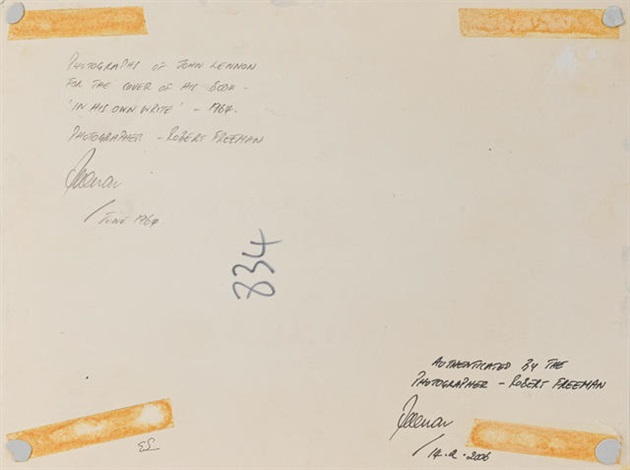 PHOTOGRAPHS OF JOHN LENNON
FOR THE COVER OF HIS BOOK -
'IN HIS OWN WRITE' - 1964.
PHOTOGRAPHER - ROBERT FREEMAN
Freeman
/ JUNE 1964.
834
AUTHENTICATED BY THE
PHOTOGRAPHER - ROBERT FREEMAN
Freeman
/ 14.2.2006